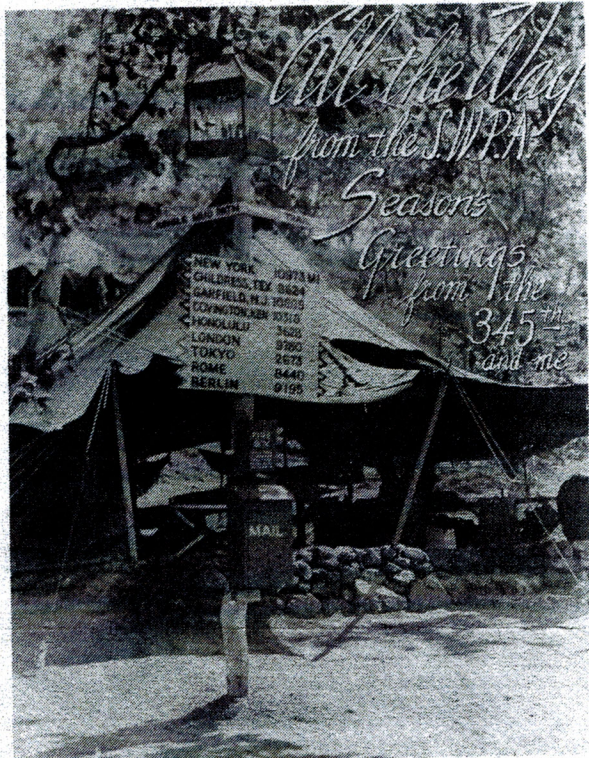 All the Way
from the S.W.P.A.
Season's
Greetings
from the
345th
and me
NEW YORK 10973 MI
CHILDRESS, TEX 8624
GARFIELD, N.J.
COVINGTON, KEN 10316
HONOLULU
LONDON
TOKYO 2673
ROME 8440
BERLIN 9195
MAIL